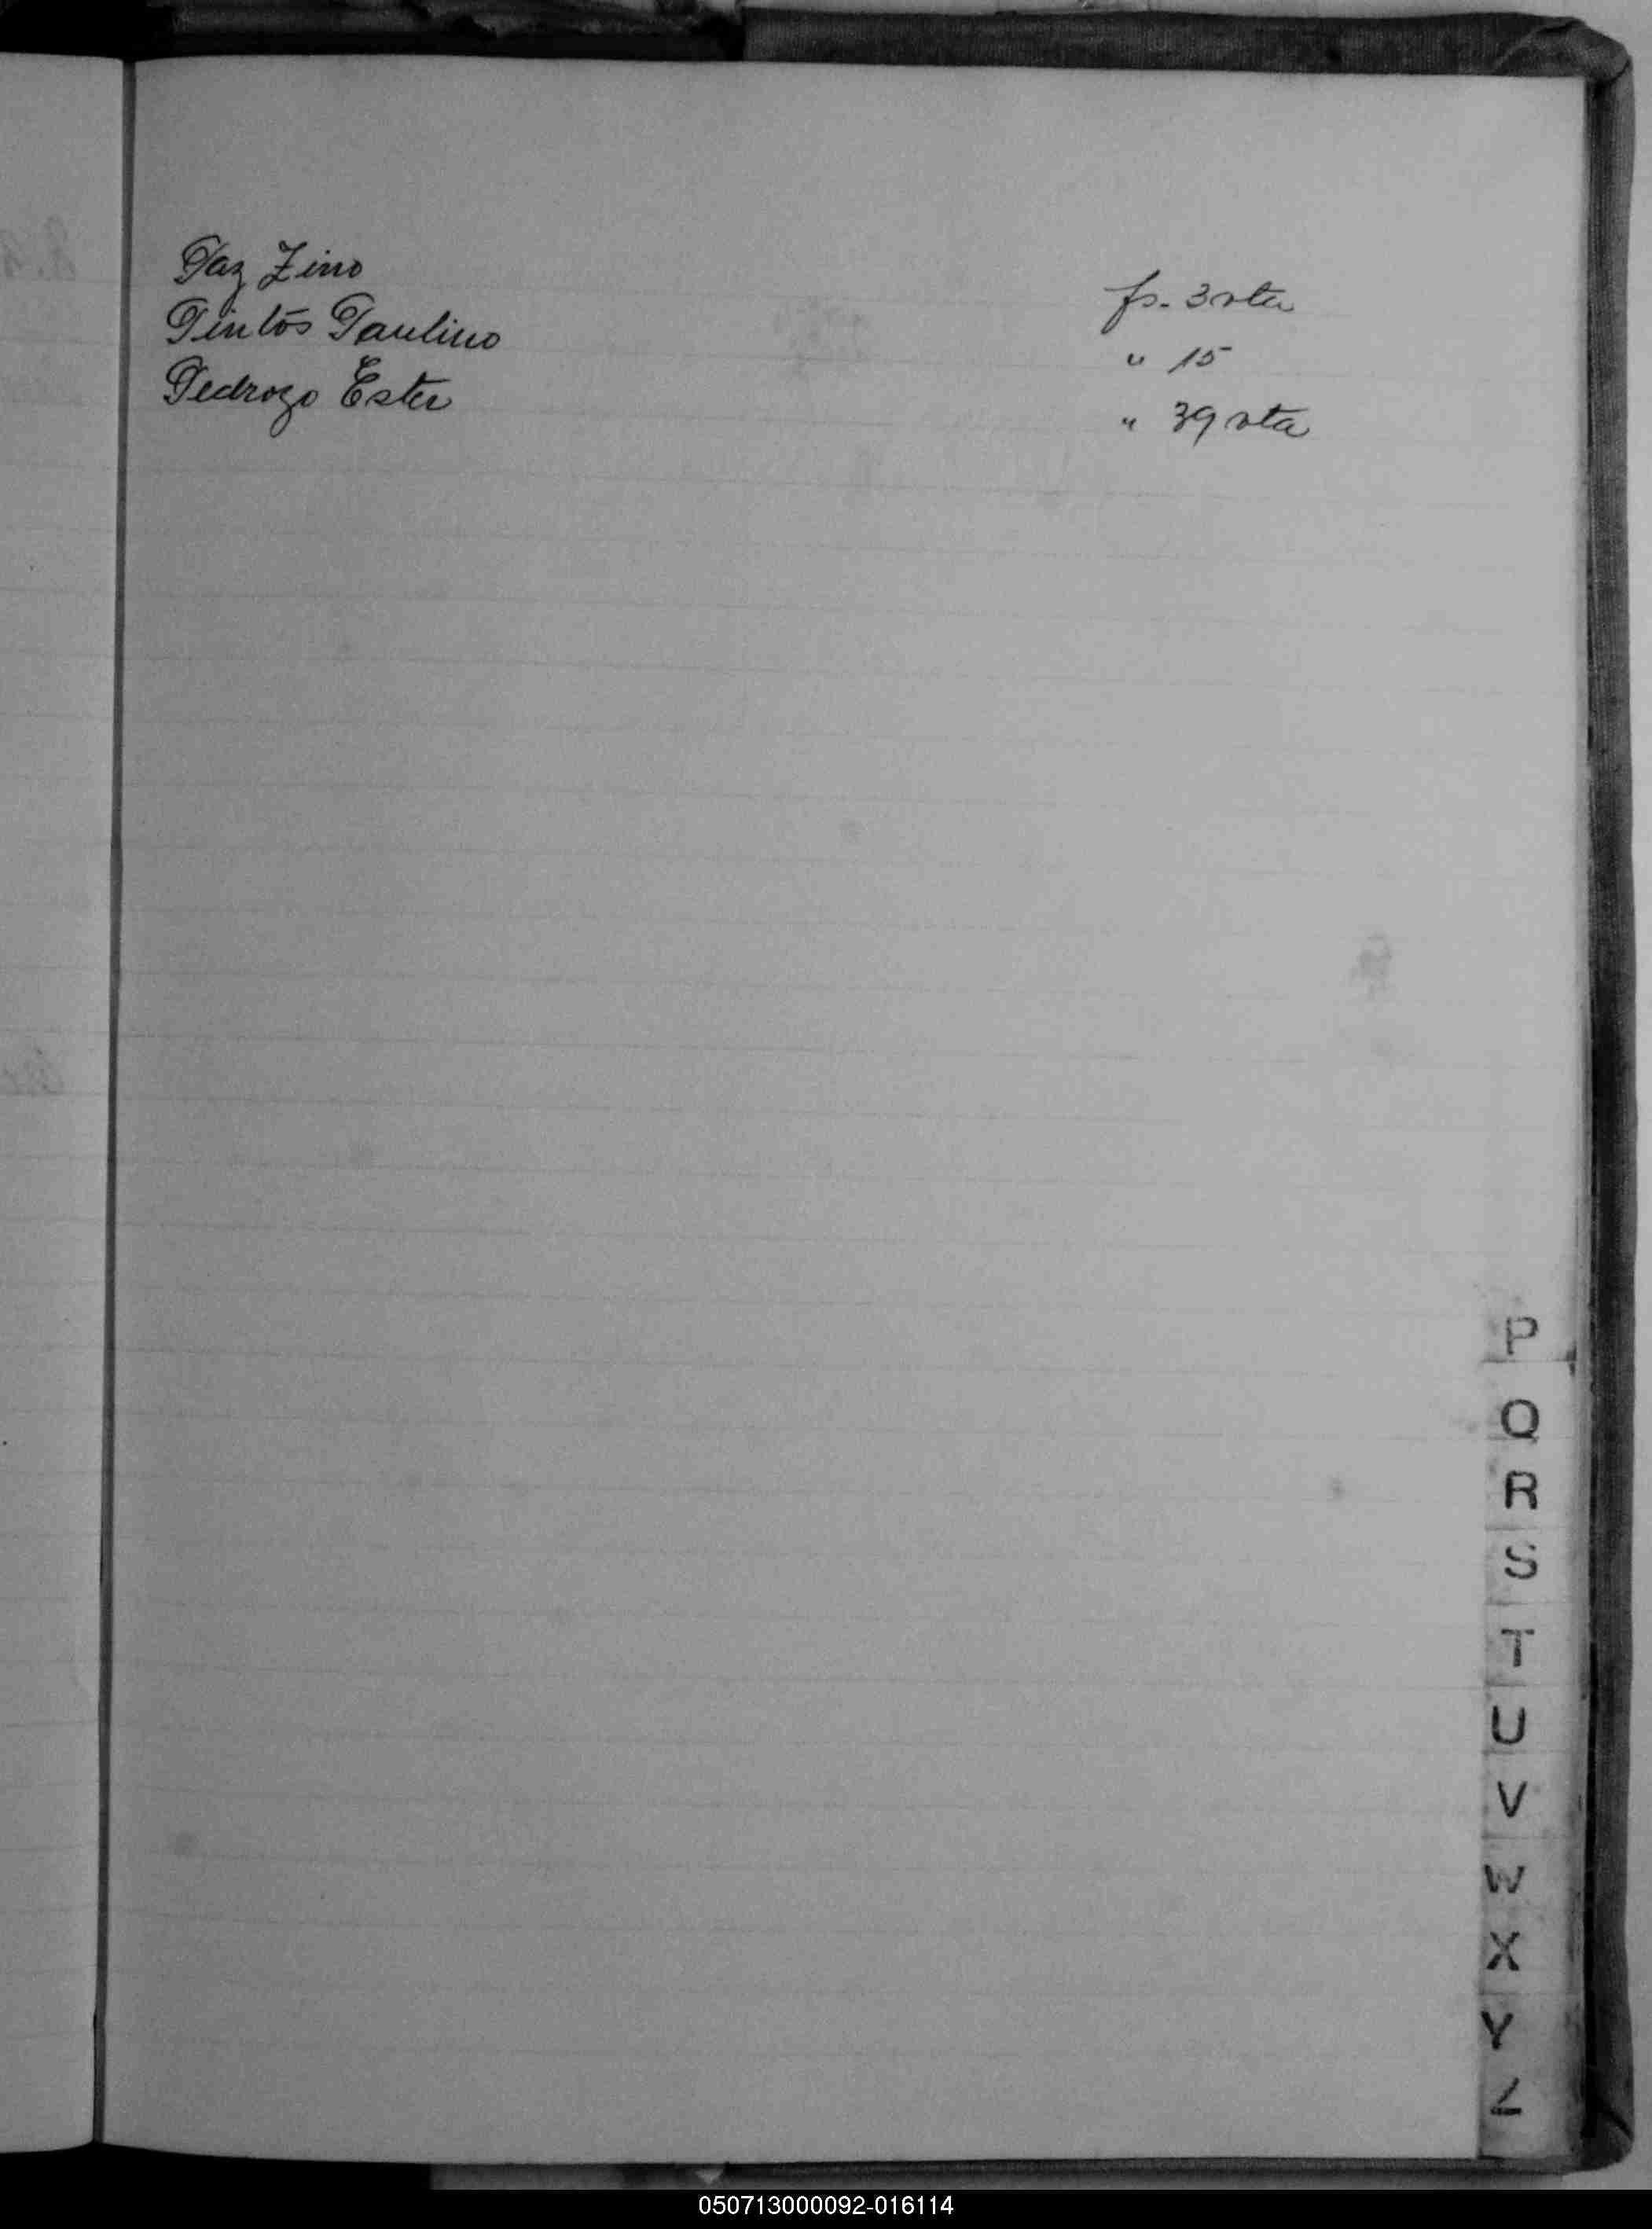 Paz Zino fs. 3 vta
Pintos Paulino " 15
Pedrozo Ester " 39 vta
P
Q
R
S
T
U
V
W
X
Y
Z
050713000092-016114